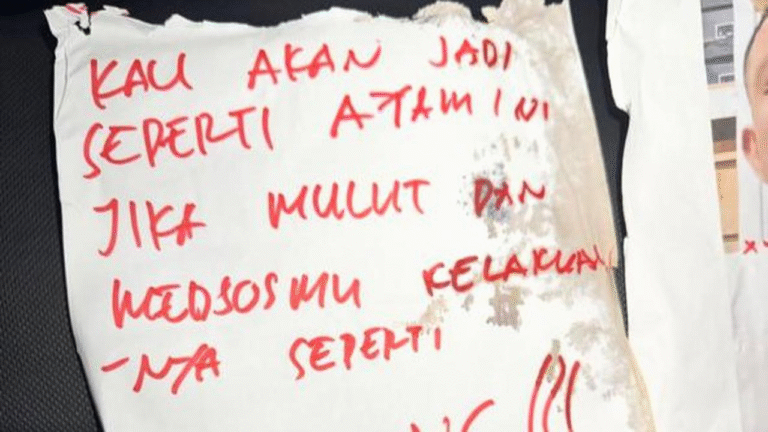 KAU AKAN JADI
SEPERTI AYAM INI
JIKA MULUT DAN
MEDSOSMU KELAKUAN
-NYA SEPERTI
!!!